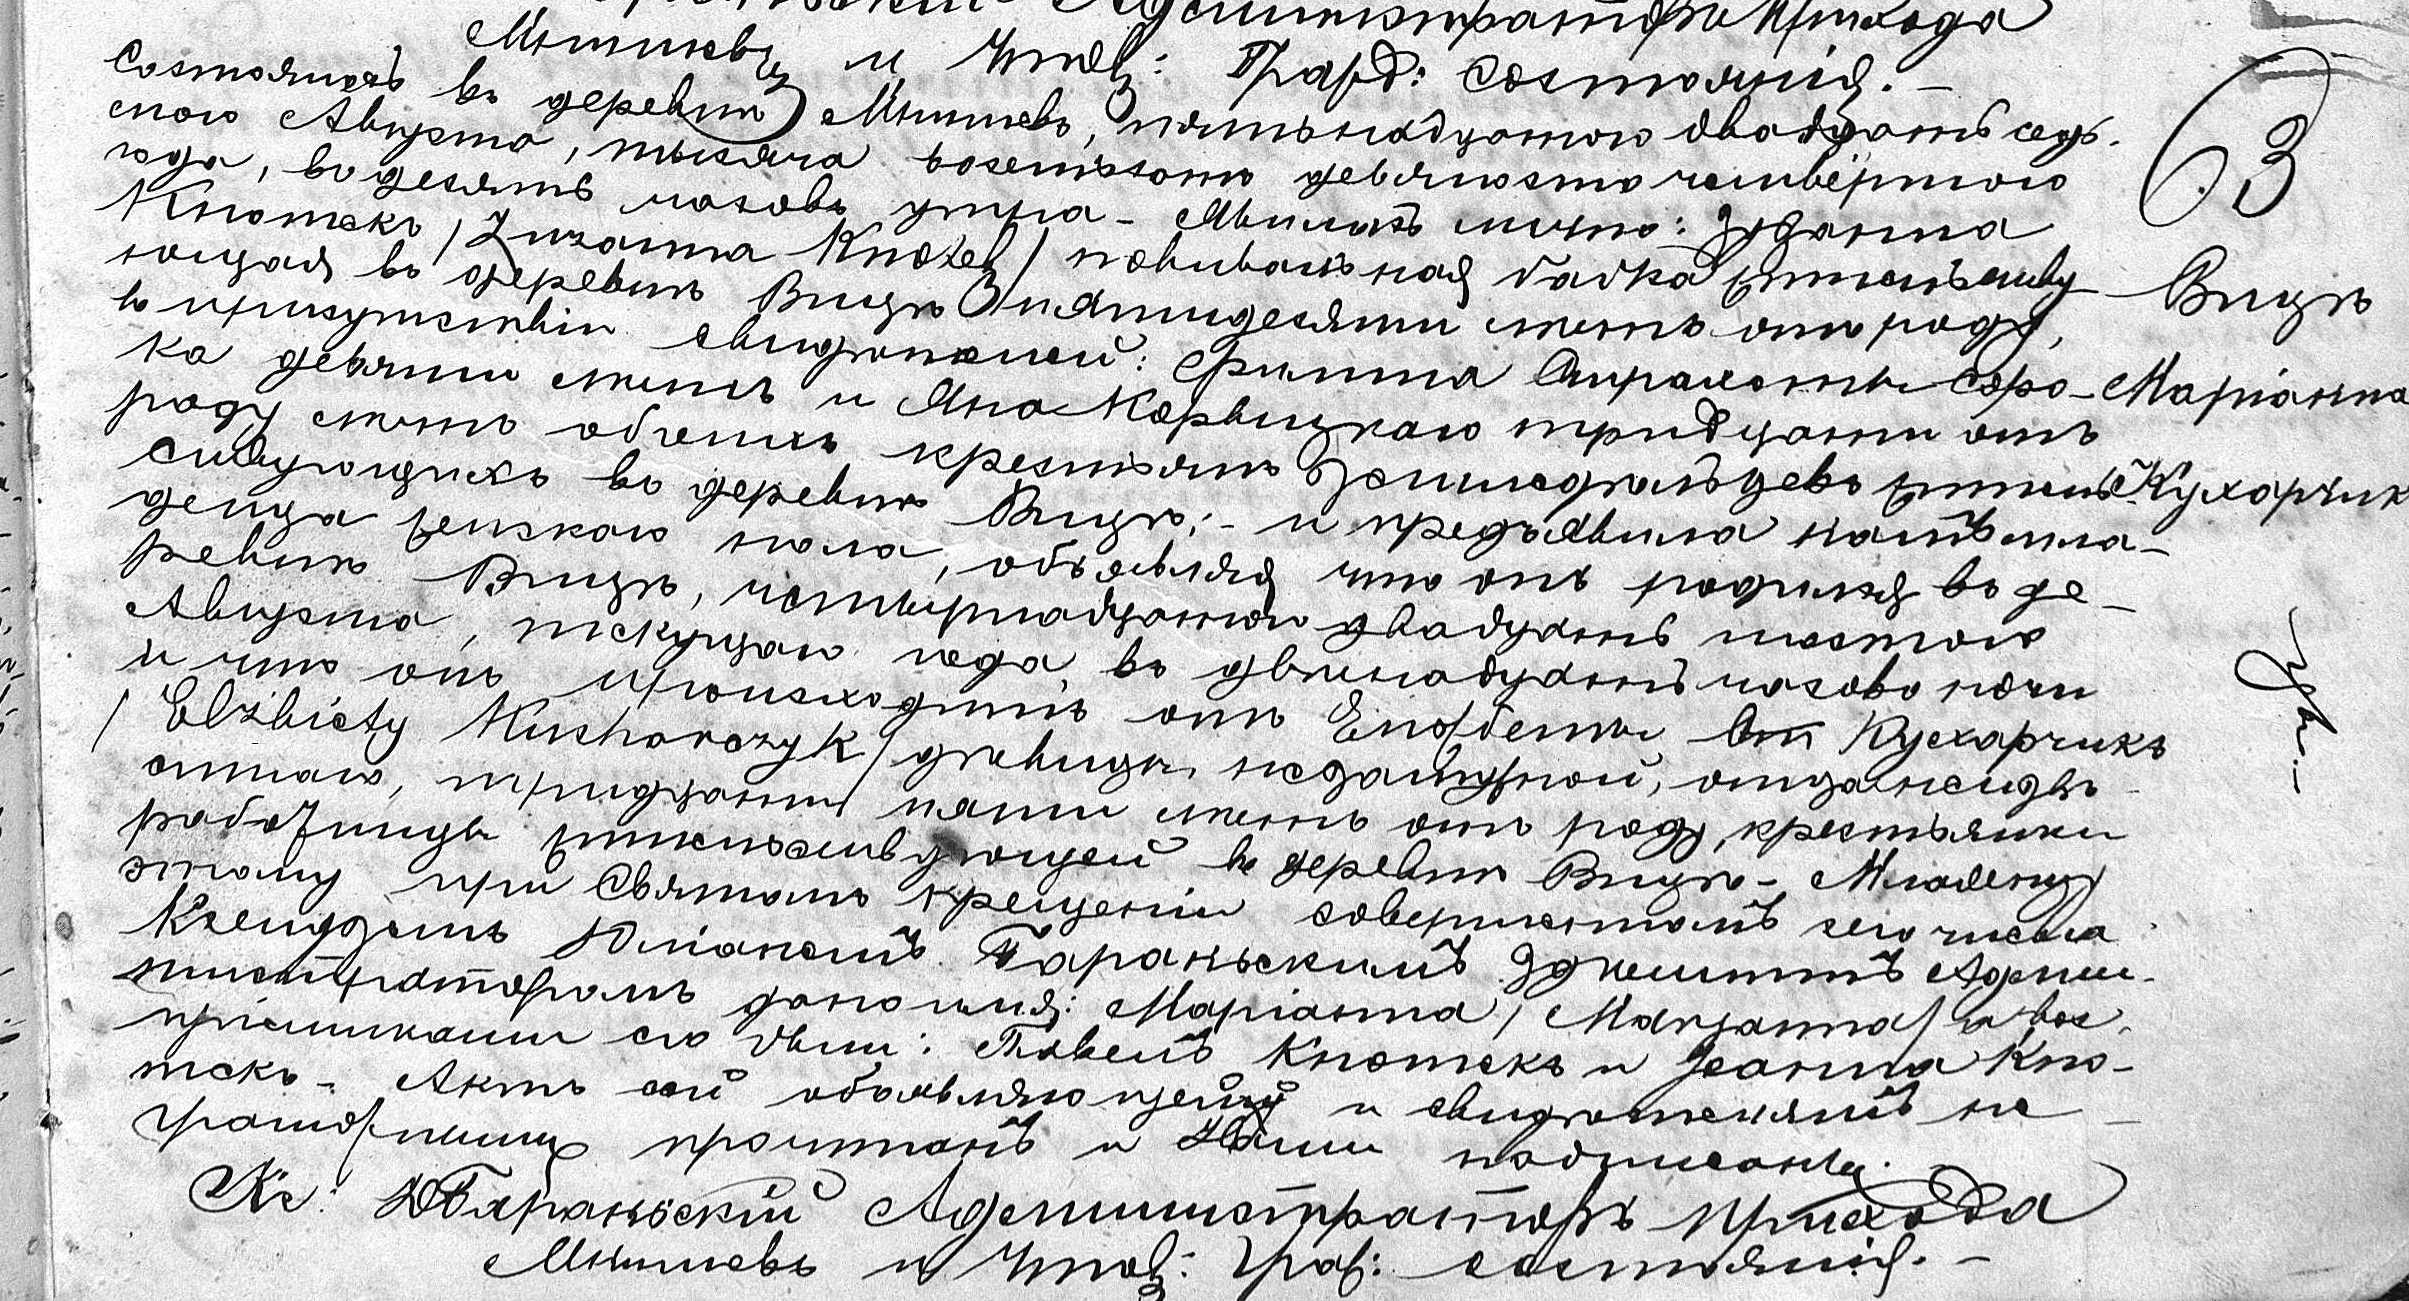 Администраторъ Прихода
Мнишевъ и Чинов: Гражд: Состоянія. —
Состоялось въ деревни Мнишевъ, пятьнадцатого двадцать седь-
мого Августа, тысяча восемьсотъ девяносто четвёртого
года, въ десять часовъ утра — Явилась лично: Зузанна
Кнотекъ /Zuzanna Knotek/ повивальная бабка жительству
ющая въ деревни Вицѣ пятидесяти лѣтъ отъ роду,
въ присутствіи свидѣтелей: Филиппа Страхоты соро-
ка девяти лѣтъ и Яна Корвицкаго тридцати отъ
роду лѣтъ обоихъ крестьянъ Землевладѣльцевъ жительст
ствующихъ въ деревни Вицѣ; — и предъявила намъ мла-
денца женскаго пола, объявляя что онъ родился въ де-
ревни Вицѣ, четырнадцатого двадцать шестого
Августа, текущаго года, въ двѣнадцать часовъ ночи
и что онъ происходитъ отъ Елжбеты Кухарчикъ
/Elżbiety Kucharczyk/ дѣвицы незамужной,
тридцати пяти лѣтъ отъ роду, крестьянки
работницы жительствующей въ деревни Вицѣ — Младенцу
этому при Святомъ крещеніи совершенномъ сего числа
Ксендземъ Юліаномъ Бараньскимъ Здѣшнимъ Адми-
нистраторомъ дано имя: Маріанна /Maryanna/ а вос-
пріемниками его были: Павелъ Кнотекъ и Жоанна Кно-
текъ — Актъ сей объявляющей и свидѣтелямъ не-
грамотнымъ прочитанъ и Нами подписанъ.
Кс: Ю Бараньскій Администраторъ прихода
Мнишевъ и Чинов: Граж: состоянія. —
63
Вицѣ
Маріанна
Кухарчик